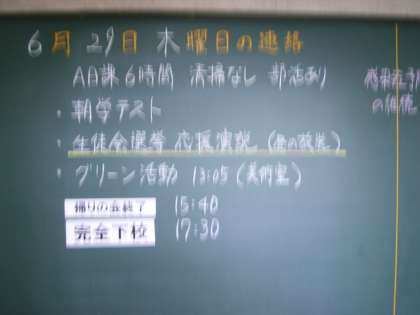 6月29日 木曜日の連絡
A日課6時間 清掃なし 部活あり
・朝学テスト
・生徒会選挙 応援演説 (の放送)
・グリーン活動 13:05 (美術室)
帰りの会終了 15:40
完全下校 17:30
の価値